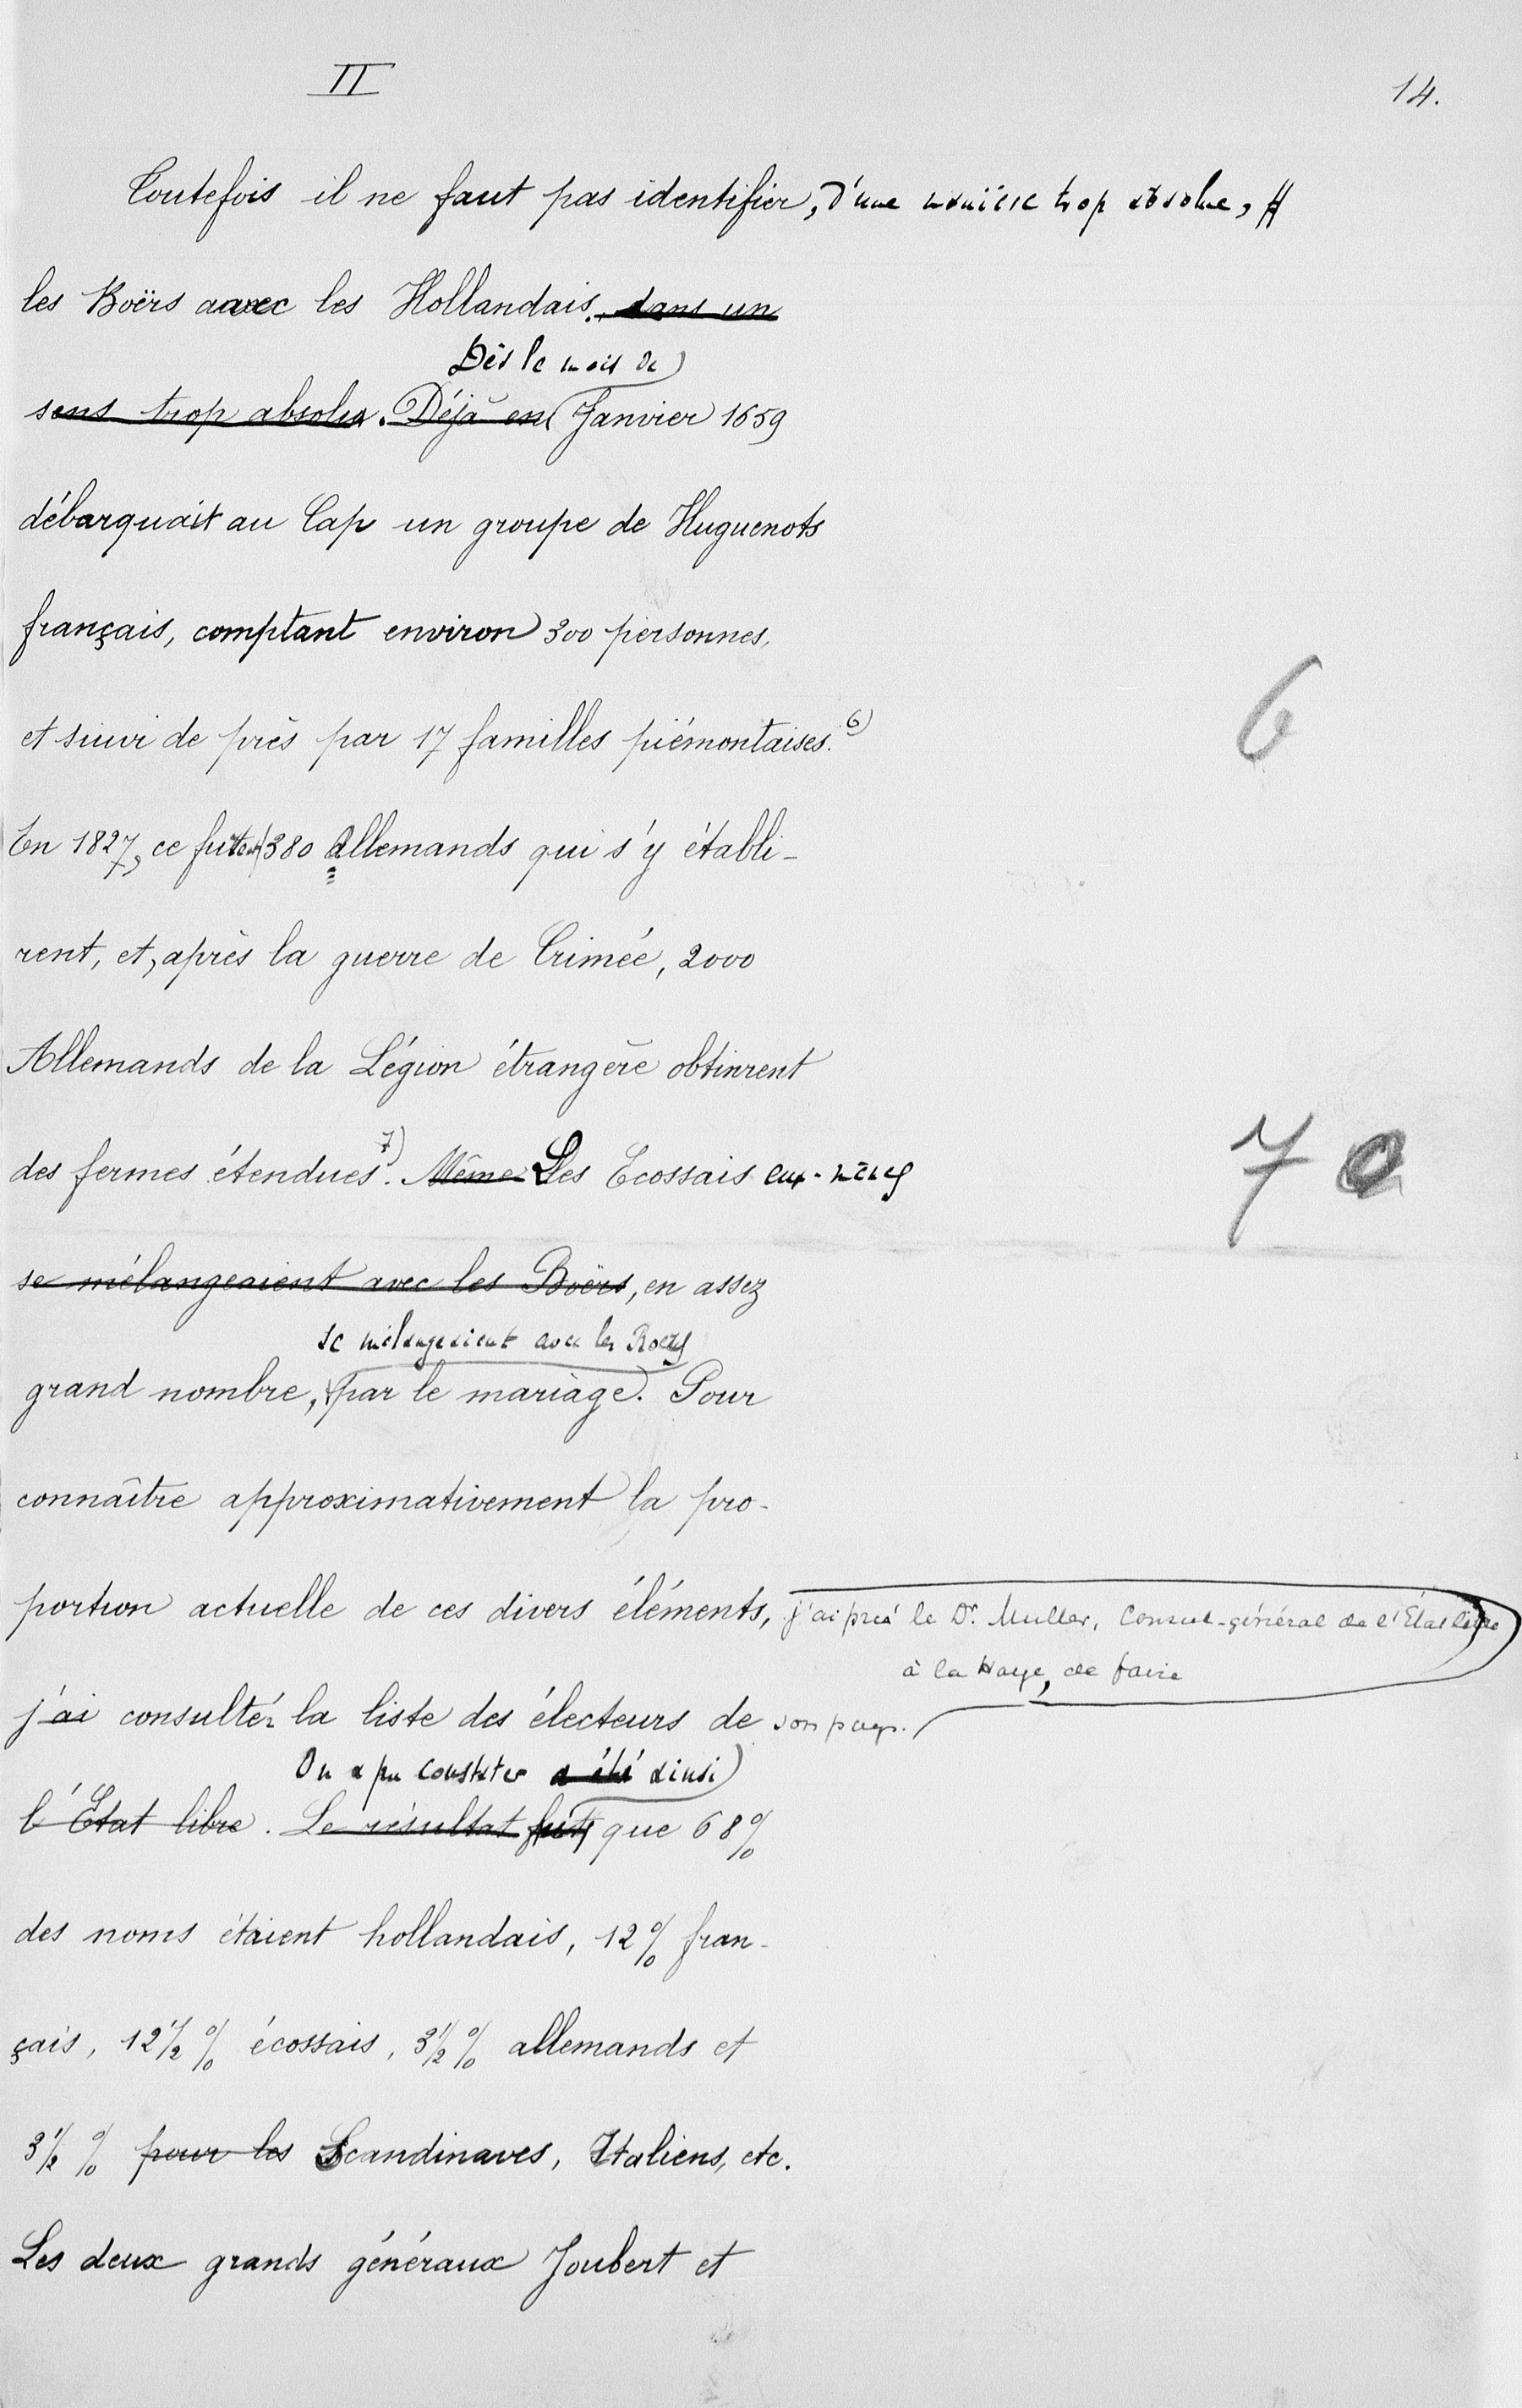 II
14.
Toutefois il ne faut pas identifier, d'une manière trop absolue, #
les Boërs avec les Hollandais. dans un
Dès le mois de
sens trop absolu. Déjà en Janvier 1659
débarquait au Cap un groupe de Huguenots
français, comptant environ 300 personnes,
et suivi de près par 17 familles piémontaises. 6)
6
En 1827, ce furent 380 Allemands qui s'y établi-
rent, et, après la guerre de Crimée, 2000
Allemands de la Légion étrangère obtinrent
des fermes étendues 7). Même Les Ecossais eux-mêmes
7
se mélangeaient avec les Boërs, en assez
se mélangeaient avec les Boers
grand nombre, par le mariage. Pour
connaître approximativement la pro-
portion actuelle de ces divers éléments, j'ai prié le Dr. Muller, Consul-général de l'État libre
à la Haye, de faire
j'ai consulter la liste des électeurs de son pays.
On a pu constater a été ainsi
l'État libre. Le résultat fut que 68%
des noms étaient hollandais, 12% fran-
çais, 12½ % écossais, 3½ % allemands et
3½ % pour les Scandinaves, Italiens, etc.
Les deux grands généraux Joubert et